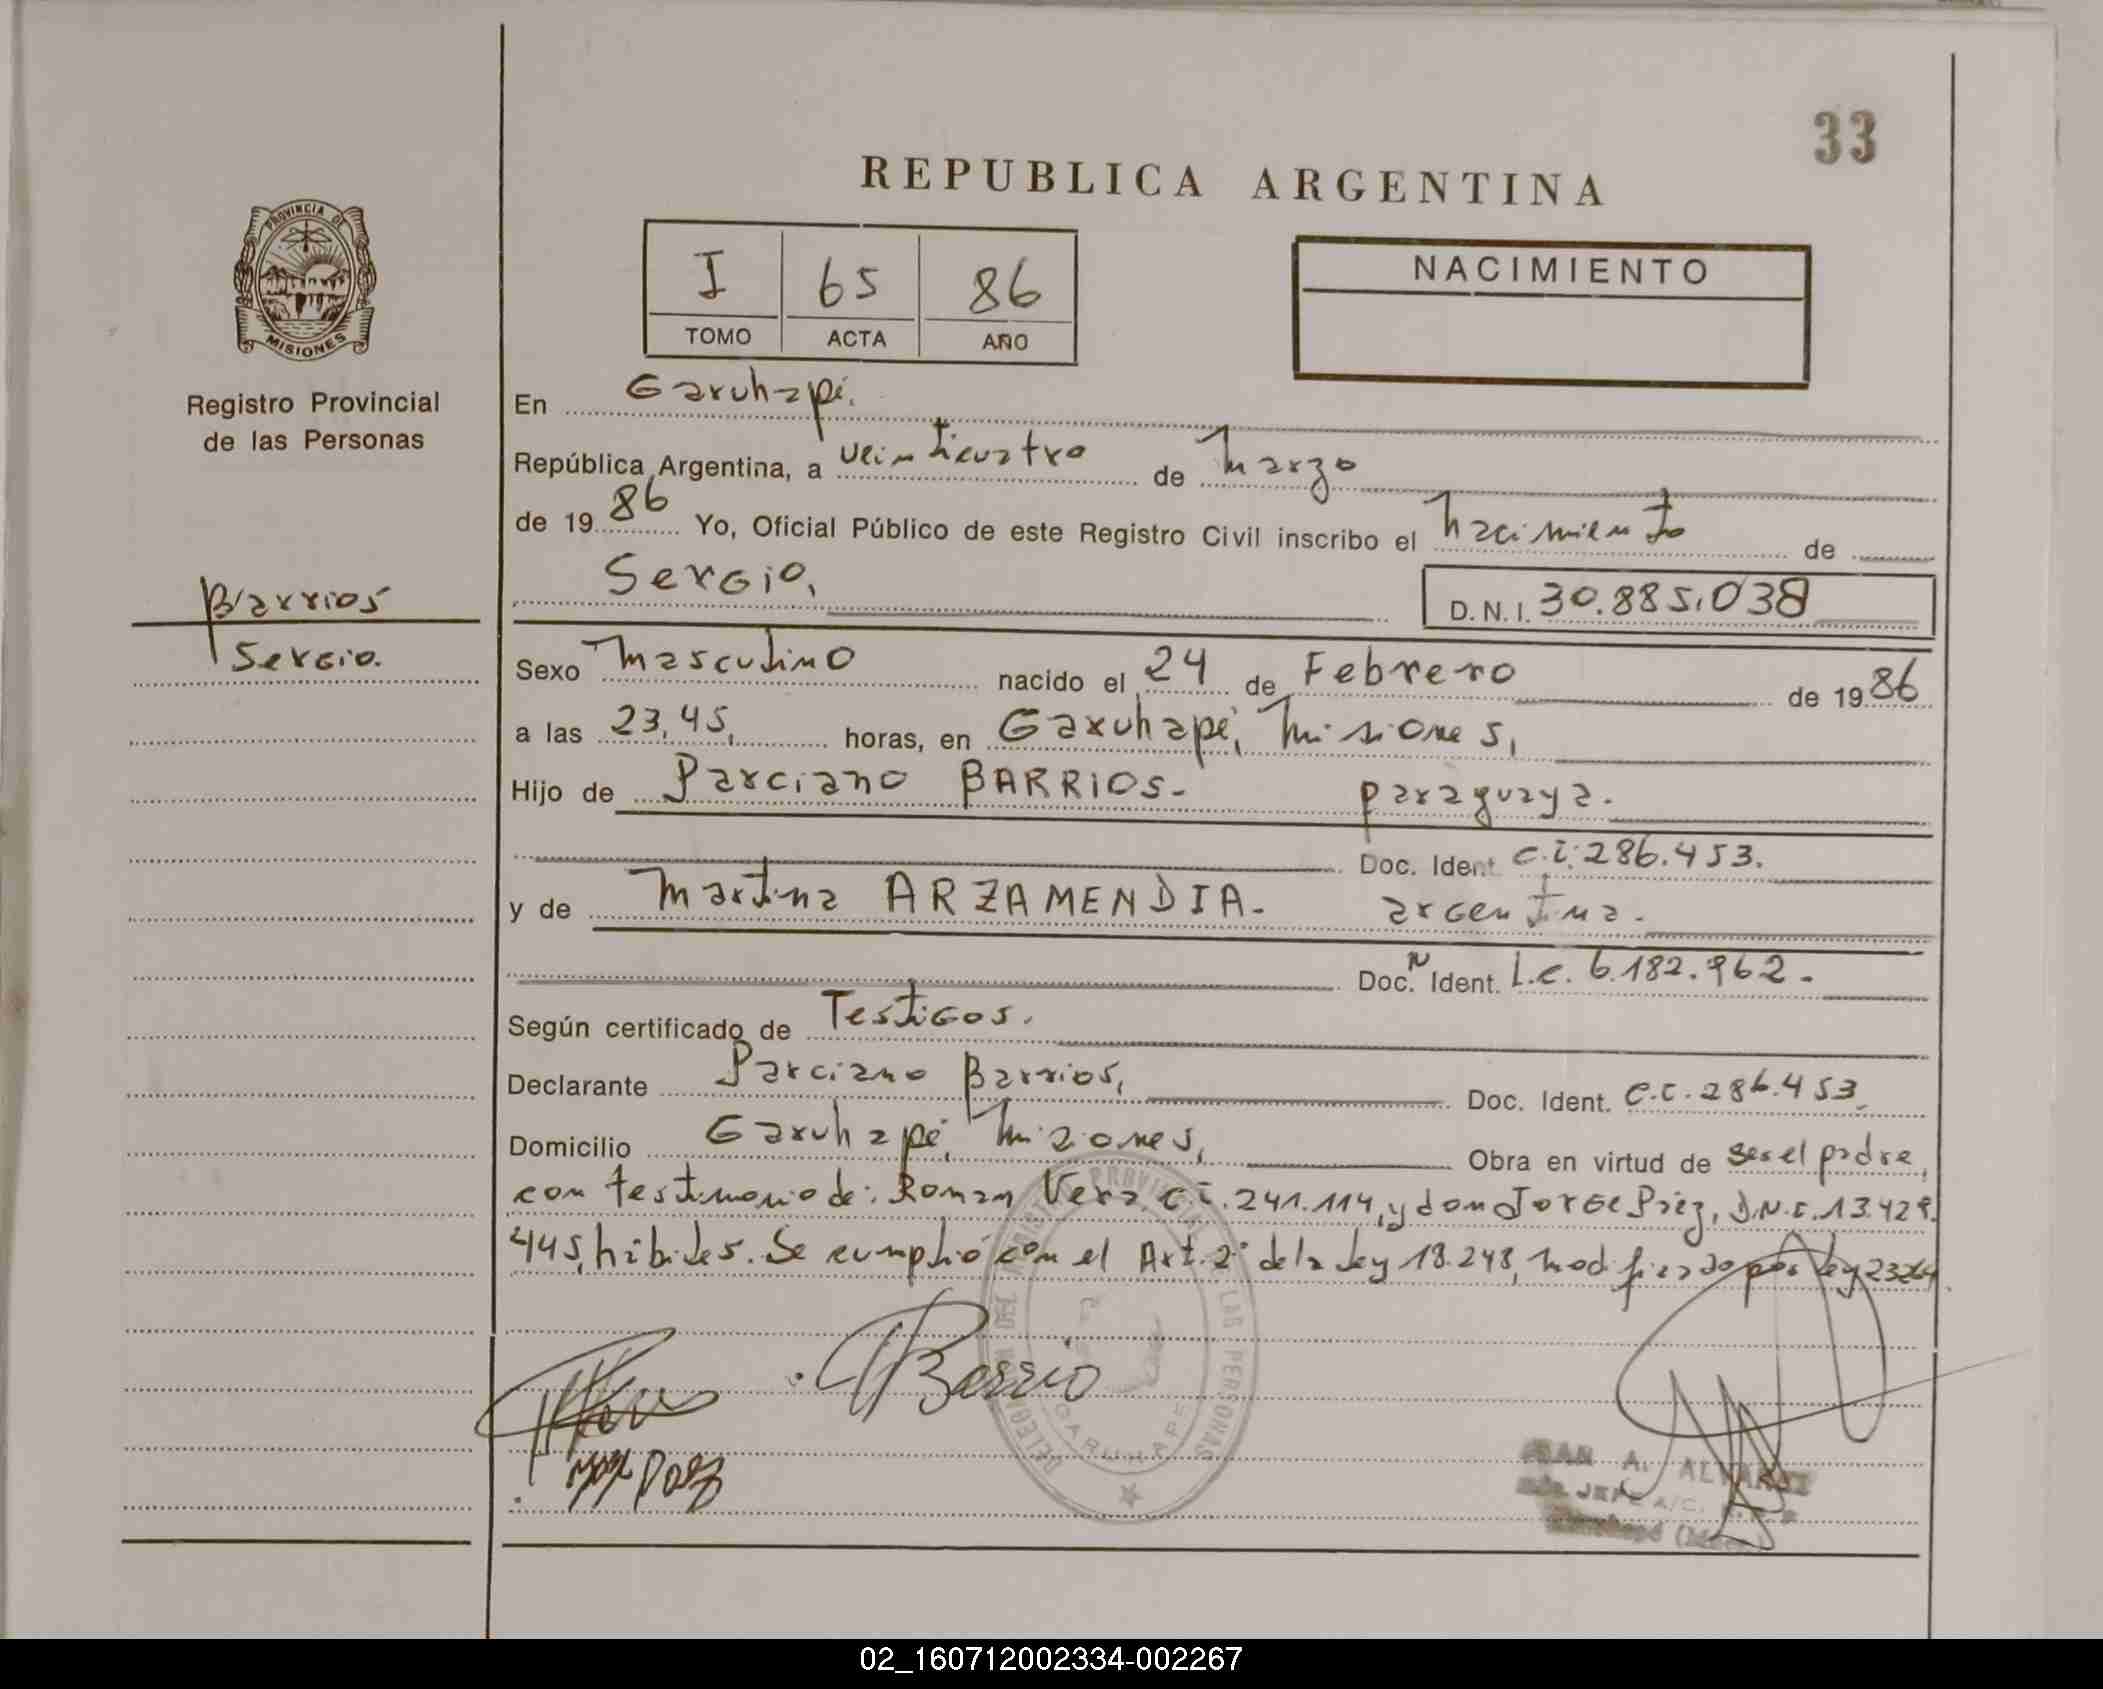 33
REPUBLICA ARGENTINA
PROVINCIA DE
MISIONES
Registro Provincial
de las Personas
I 65 86
TOMO ACTA AÑO
NACIMIENTO
En Garuhapé.
República Argentina, a veinticuatro de Marzo
de 1986 Yo, Oficial Público de este Registro Civil inscribo el nacimiento de
Sergio, D.N.I. 30.885.038
Barrios
Sergio.
Sexo Masculino nacido el 24 de Febrero de 1986
a las 23,45, horas, en Garuhapé, Misiones,
Hijo de Parciano BARRIOS. paraguaya.
Doc. Ident. c.i. 286.453.
y de Martina ARZAMENDIA. argentina.
Doc. N Ident. L.c. 6.182.962.
Según certificado de Testigos.
Declarante Parciano Barrios, Doc. Ident. c.i. 286.453
Domicilio Garuhapé, Misiones, Obra en virtud de ser el padre,
con testimonio de: Roman Vera, ci. 241.114, y don Jorge Páez, D.N.I. 13.429.
445, hábiles. Se cumplió con el Art. 2° de la Ley 18.248, modificado por Ley 23264
DELEGACION DEL REGISTRO PROVINCIAL DE LAS PERSONAS
GARUHAPE
Barrio
Paez
JUAN A. ALVAREZ
JEFE A/C.
02_160712002334-002267